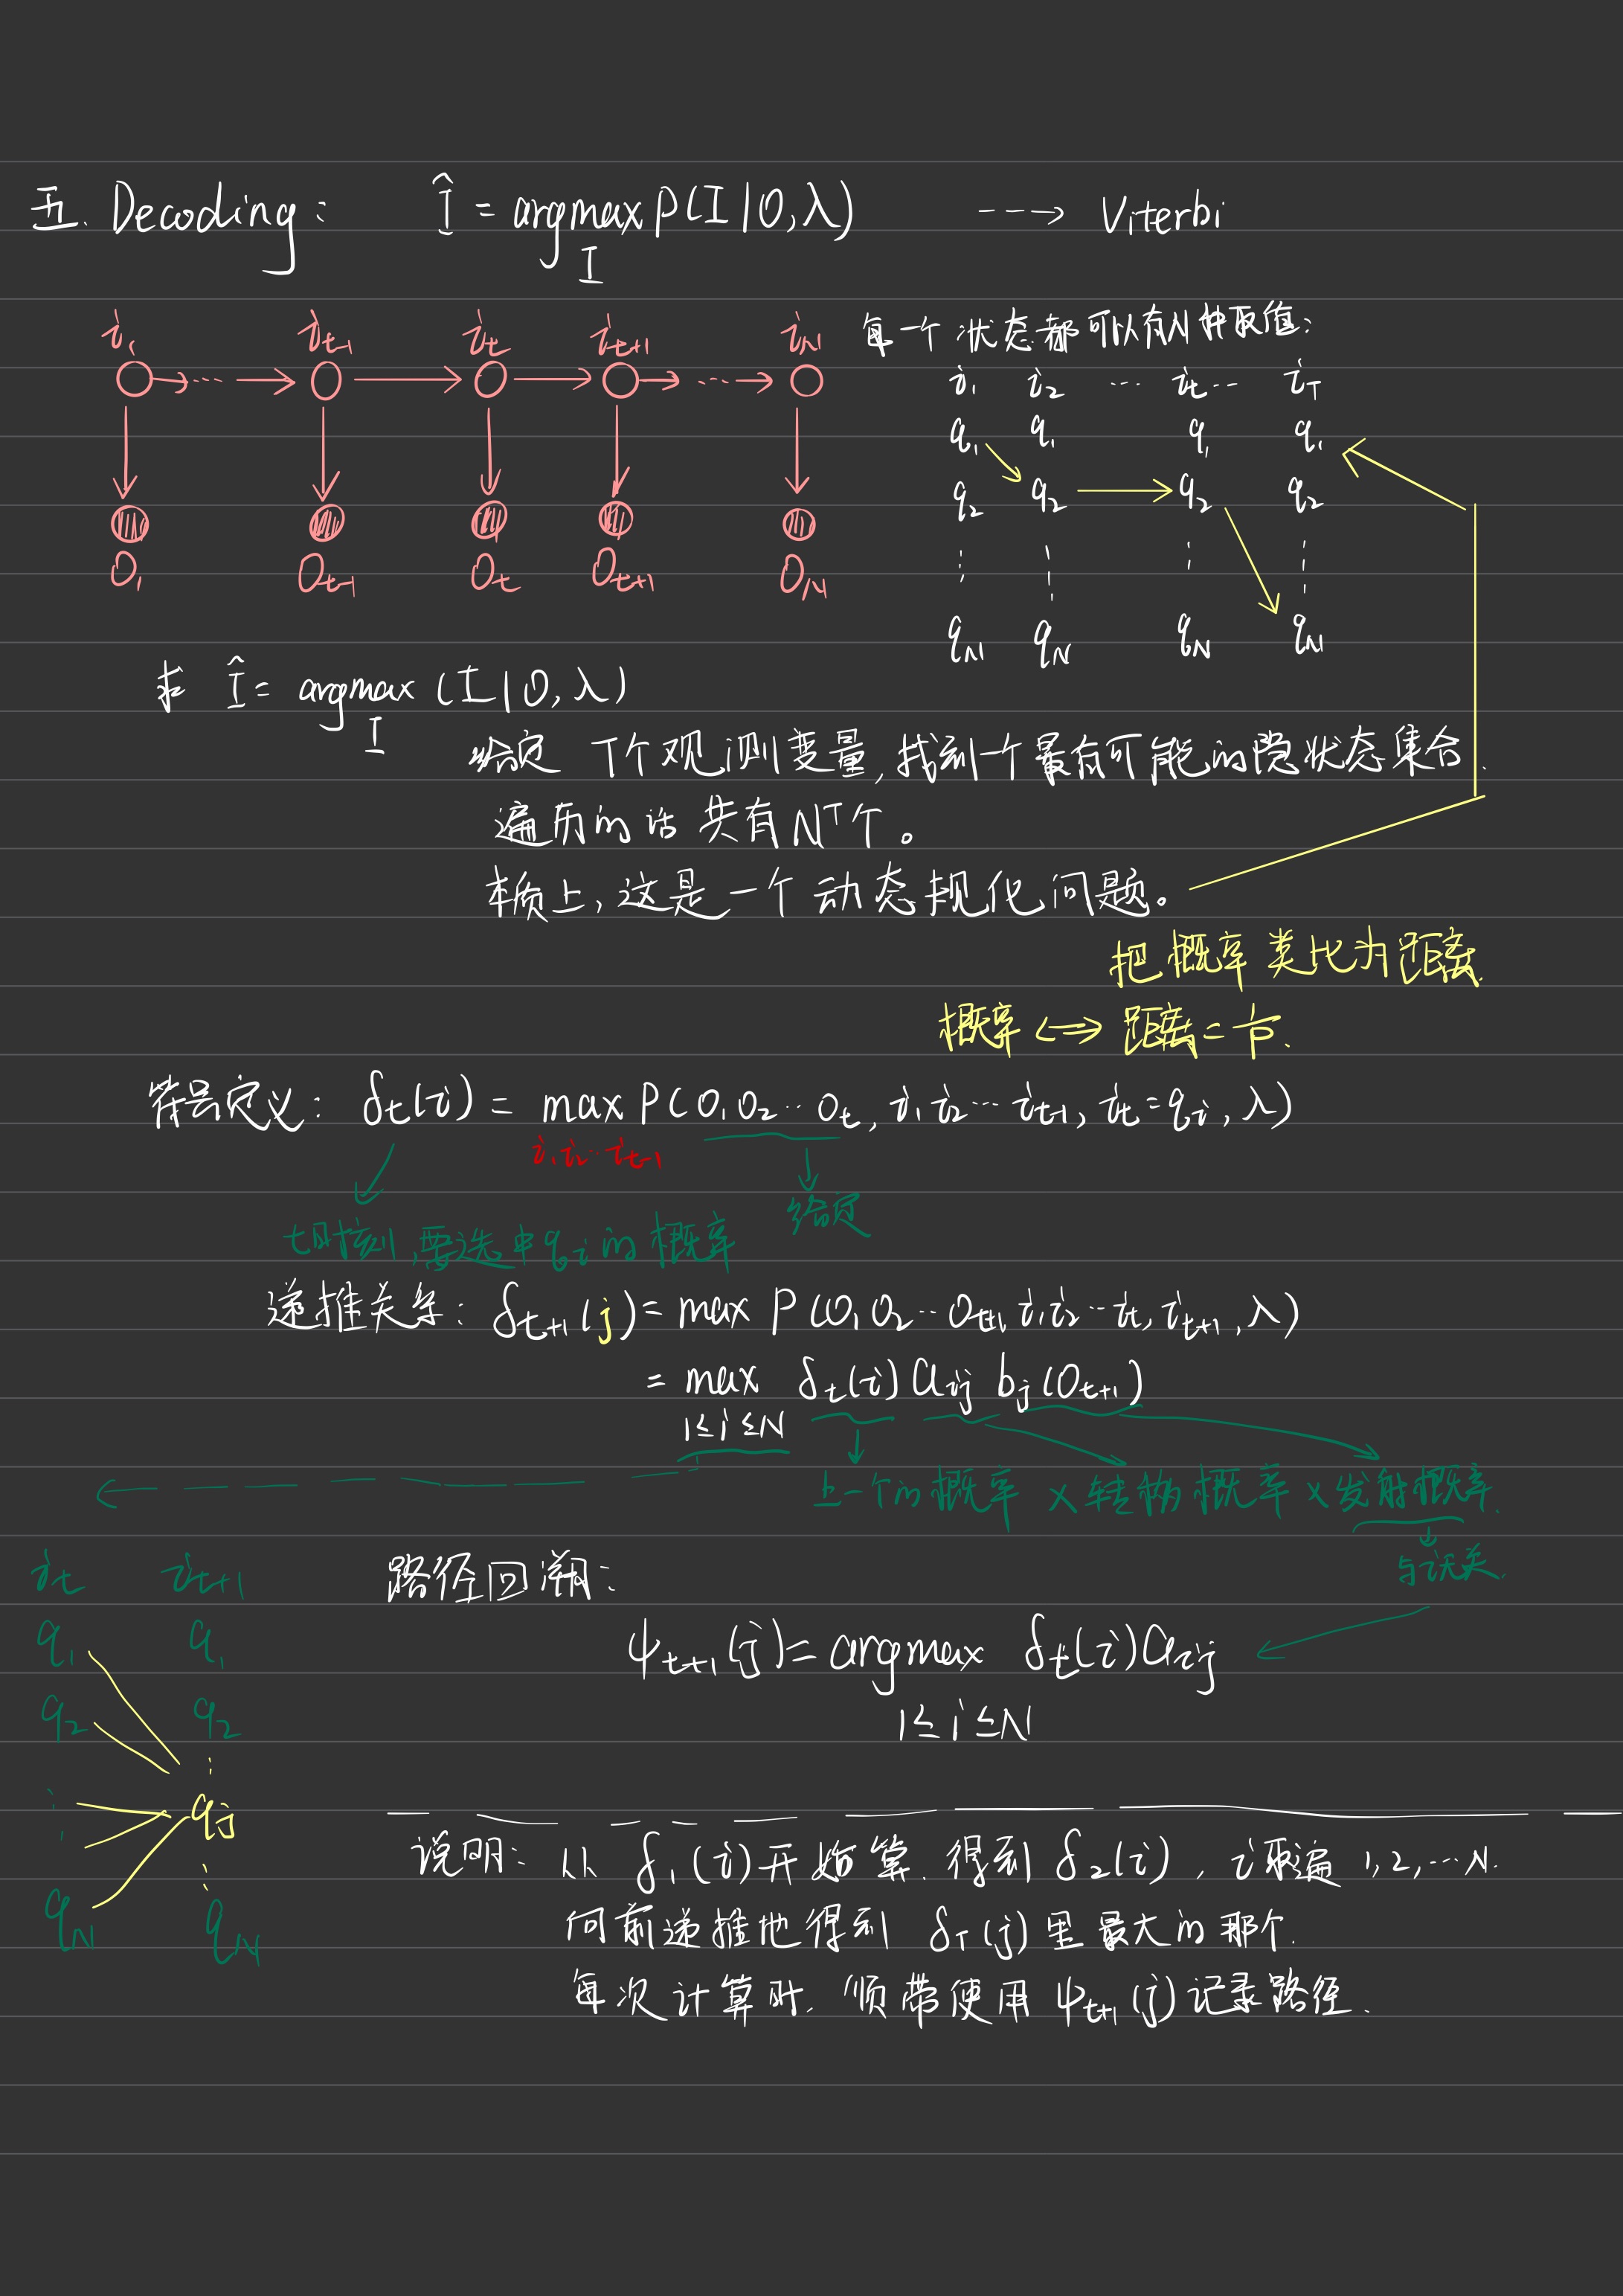 五. Decoding: Î = argmax P(I|O,λ) ---> Viterbi
I
i₁ iₜ₋₁ iₜ iₜ₊₁ i_N
O₁ Oₜ₋₁ Oₜ Oₜ₊₁ O_N
每一个状态都可以有N种取值:
i₁ i₂ ... iₜ ... i_T
q₁ q₁ q₁ q₁
q₂ q₂ q₂ q₂
⋮ ⋮ ⋮ ⋮
q_N q_N q_N q_N
求 Î = argmax (I|O,λ)
I
给定 T个观测变量,找到一个最有可能的隐状态集合.
遍历的话共有Nᵀ个。
本质上,这是一个动态规化问题。
把概率类比为距离.
概率 <--> 距离 = 1/p.
符号定义: δₜ(i) = max P(O₁O₂...Oₜ, i₁i₂...iₜ₋₁, iₜ=qᵢ, λ)
i₁i₂...iₜ₋₁
给定
t时刻,要选中qᵢ的概率
递推关系: δₜ₊₁(j) = max P(O₁O₂...Oₜ₊₁, i₁i₂...iₜ, iₜ₊₁, λ)
= max δₜ(i) aᵢⱼ bⱼ(Oₜ₊₁)
1≤i≤N
上一个的概率 × 转移概率 × 发射概率.
与i无关.
iₜ iₜ₊₁
q₁ q₁
q₂ q₂
⋮ ⋮
qⱼ
⋮
q_N q_N
路径回溯:
ψₜ₊₁(j) = argmax δₜ(i)aᵢⱼ
1≤i≤N
说明: 从 δ₁(i)开始算. 得到 δ₂(i), i取遍 1,2,...N.
向前递推地得到 δ_T(j)里最大的那个.
每次计算时. 顺带使用 ψₜ₊₁(j)记录路径.